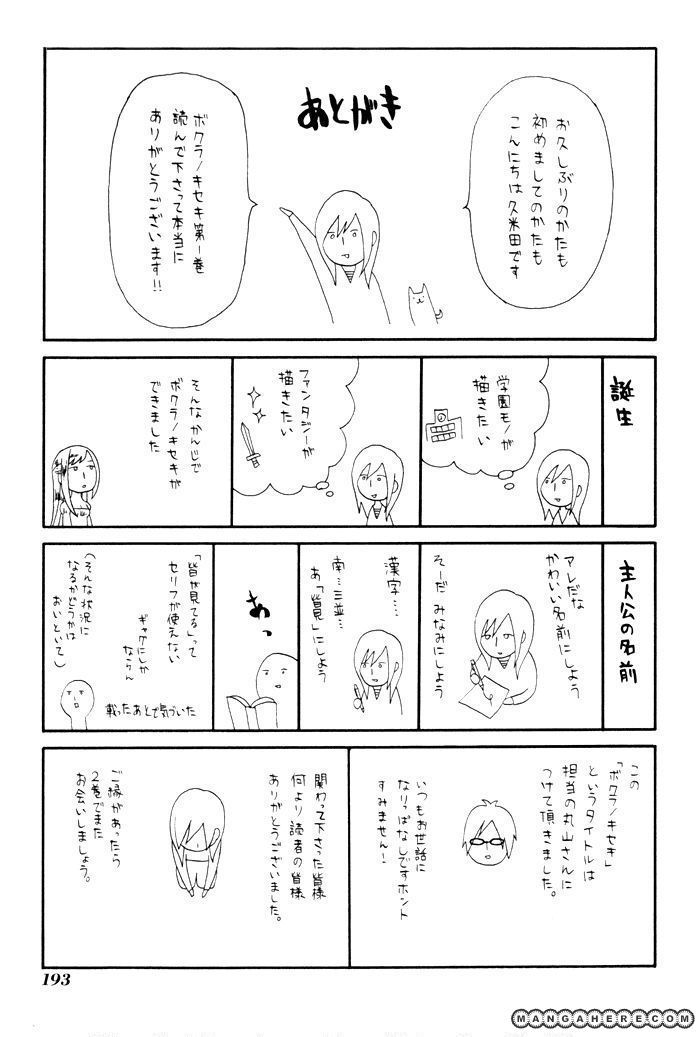 あとがき
お久しぶりのかたも
初めましてのかたも
こんにちは久米田です
ボクラノキセキ第1巻
読んで下さって本当に
ありがとうございます!!
誕生
学園モノが
描きたい
ファンタジーが
描きたい
そんなかんじで
ボクラノキセキが
できました
主人公の名前
アレだな
かわいい名前にしよう
そーだ みなみにしよう
漢字…
南…三並…
あ「皆見」にしよう
あっ
「皆が見てる」って
セリフが使えない
ギャグにしか
ならん
(そんな状況に
なるかどうかは
おいといて)
載ったあとで気づいた
この
「ボクラノキセキ」
というタイトルは
担当の丸山さんに
つけて頂きました。
いつもお世話に
なりっぱなしですホント
すみません!
関わって下さった皆様
何より読者の皆様
ありがとうございました。
ご縁があったら
2巻でまた
お会いしましょう。
193
MANGAHERE.COM